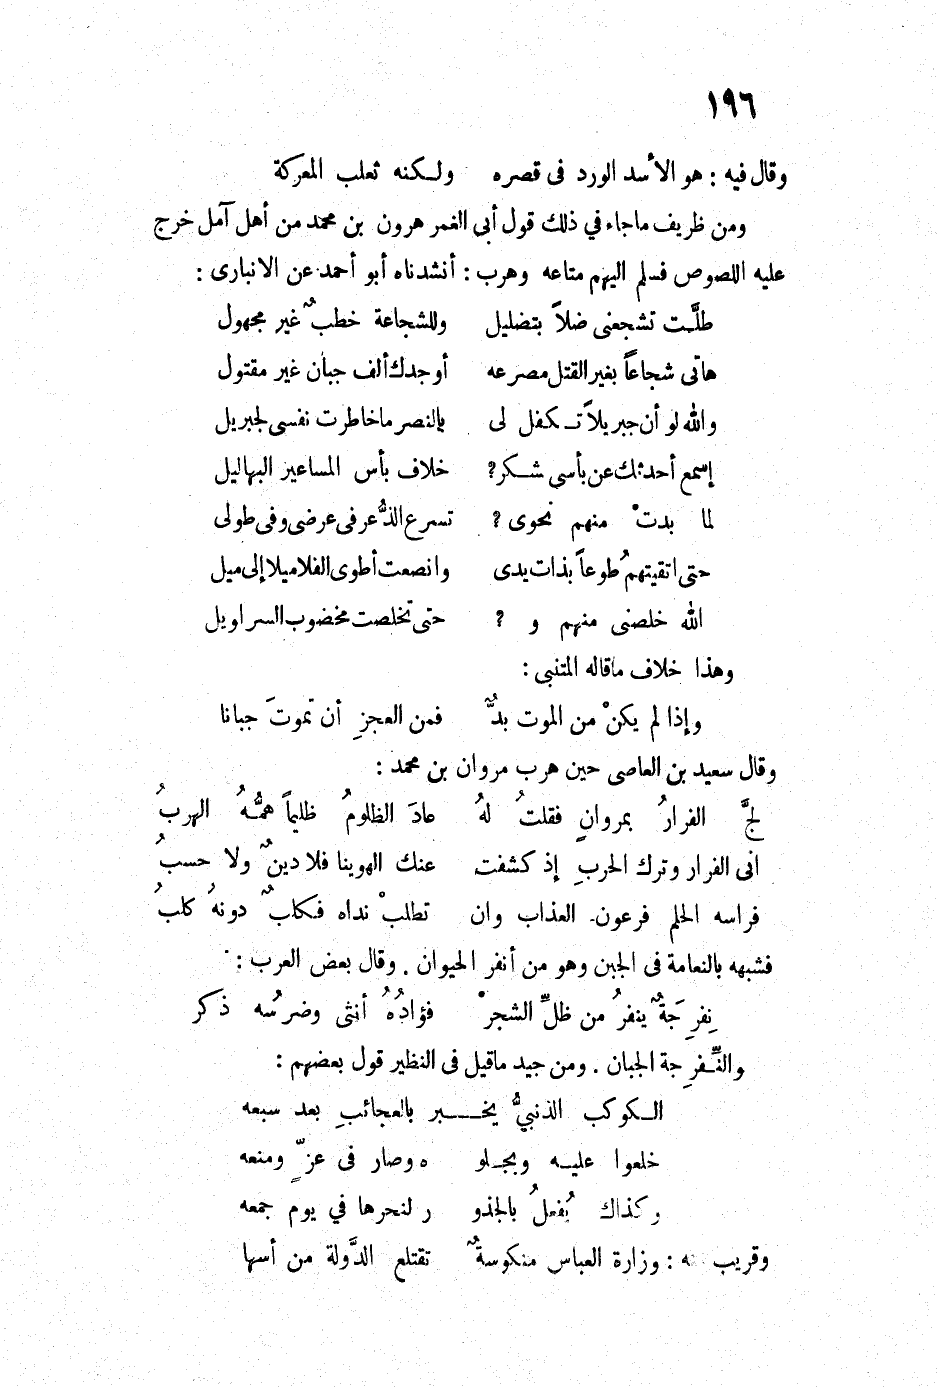 ١٩٦
وقال فيه : هو الأسد الورد فى قصره ولكنه ثعلب المعركة
ومن ظريف ماجاء في ذلك قول أبى الغمر هرون بن محمد من أهل آمل خرج
عليه اللصوص فسلم اليهم متاعه وهرب : أنشدناه أبو أحمد عن الانبارى :
ظلَّت تشجعنى ضلاً بتضليل وللشجاعة خطبٌ غير مجهول
هاتى شجاعاً بغير القتل مصرعه أوجدك ألف جبان غير مقتول
والله لو أن جبريلاً تكفل لى بالنصر ماخاطرت نفسى لجبريل
إسمع أحدثك عن بأسى شكر؟ خلاف بأس المساعير البهاليل
لما بدتْ منهم نحوى ؟ تسرع الذُّعر فى عرضى وفى طولى
حتى اتقيتهمُ طوعاً بذات يدى وانصعت أطوى الفلا ميلا إلى ميل
الله خلصنى منهم و ؟ حتى تخلصت مخضوب السراويل
وهذا خلاف ماقاله المتنبى :
وإذا لم يكنْ من الموت بدٌّ فمن العجزِ أن تموتَ جبانا
وقال سعيد بن العاصى حين هرب مروان بن محمد :
لجَّ الفرارُ بمروانٍ فقلتُ لهُ عادَ الظلومُ ظليماً همُّهُ الهربُ
انى الفرار وترك الحربِ إذ كشفت عنك الهوينا فلا دينٌ ولا حسبُ
فراسه الحلم فرعون العذاب وان تطلبْ نداه فكلبٌ دونهُ كلبُ
فشبهه بالنعامة فى الجبن وهو من أنفر الحيوان . وقال بعض العرب :
نِفرِجَةٌ ينفرُ من ظلِّ الشجرْ فؤادُهُ أنثى وضرسُه ذكر
والنِّفرِجة الجبان . ومن جيد ماقيل فى النظير قول بعضهم :
الكوكب الذنبيُّ يخبر بالعجائبِ بعد سبعه
خلعوا عليه وبجلو ه وصار فى عزٍّ ومنعه
وكذاك يُفعلُ بالجذو ر لنحرها في يوم جمعه
وقريب منه : وزارة العباس منكوسةٌ تقتلع الدَّولة من أسها